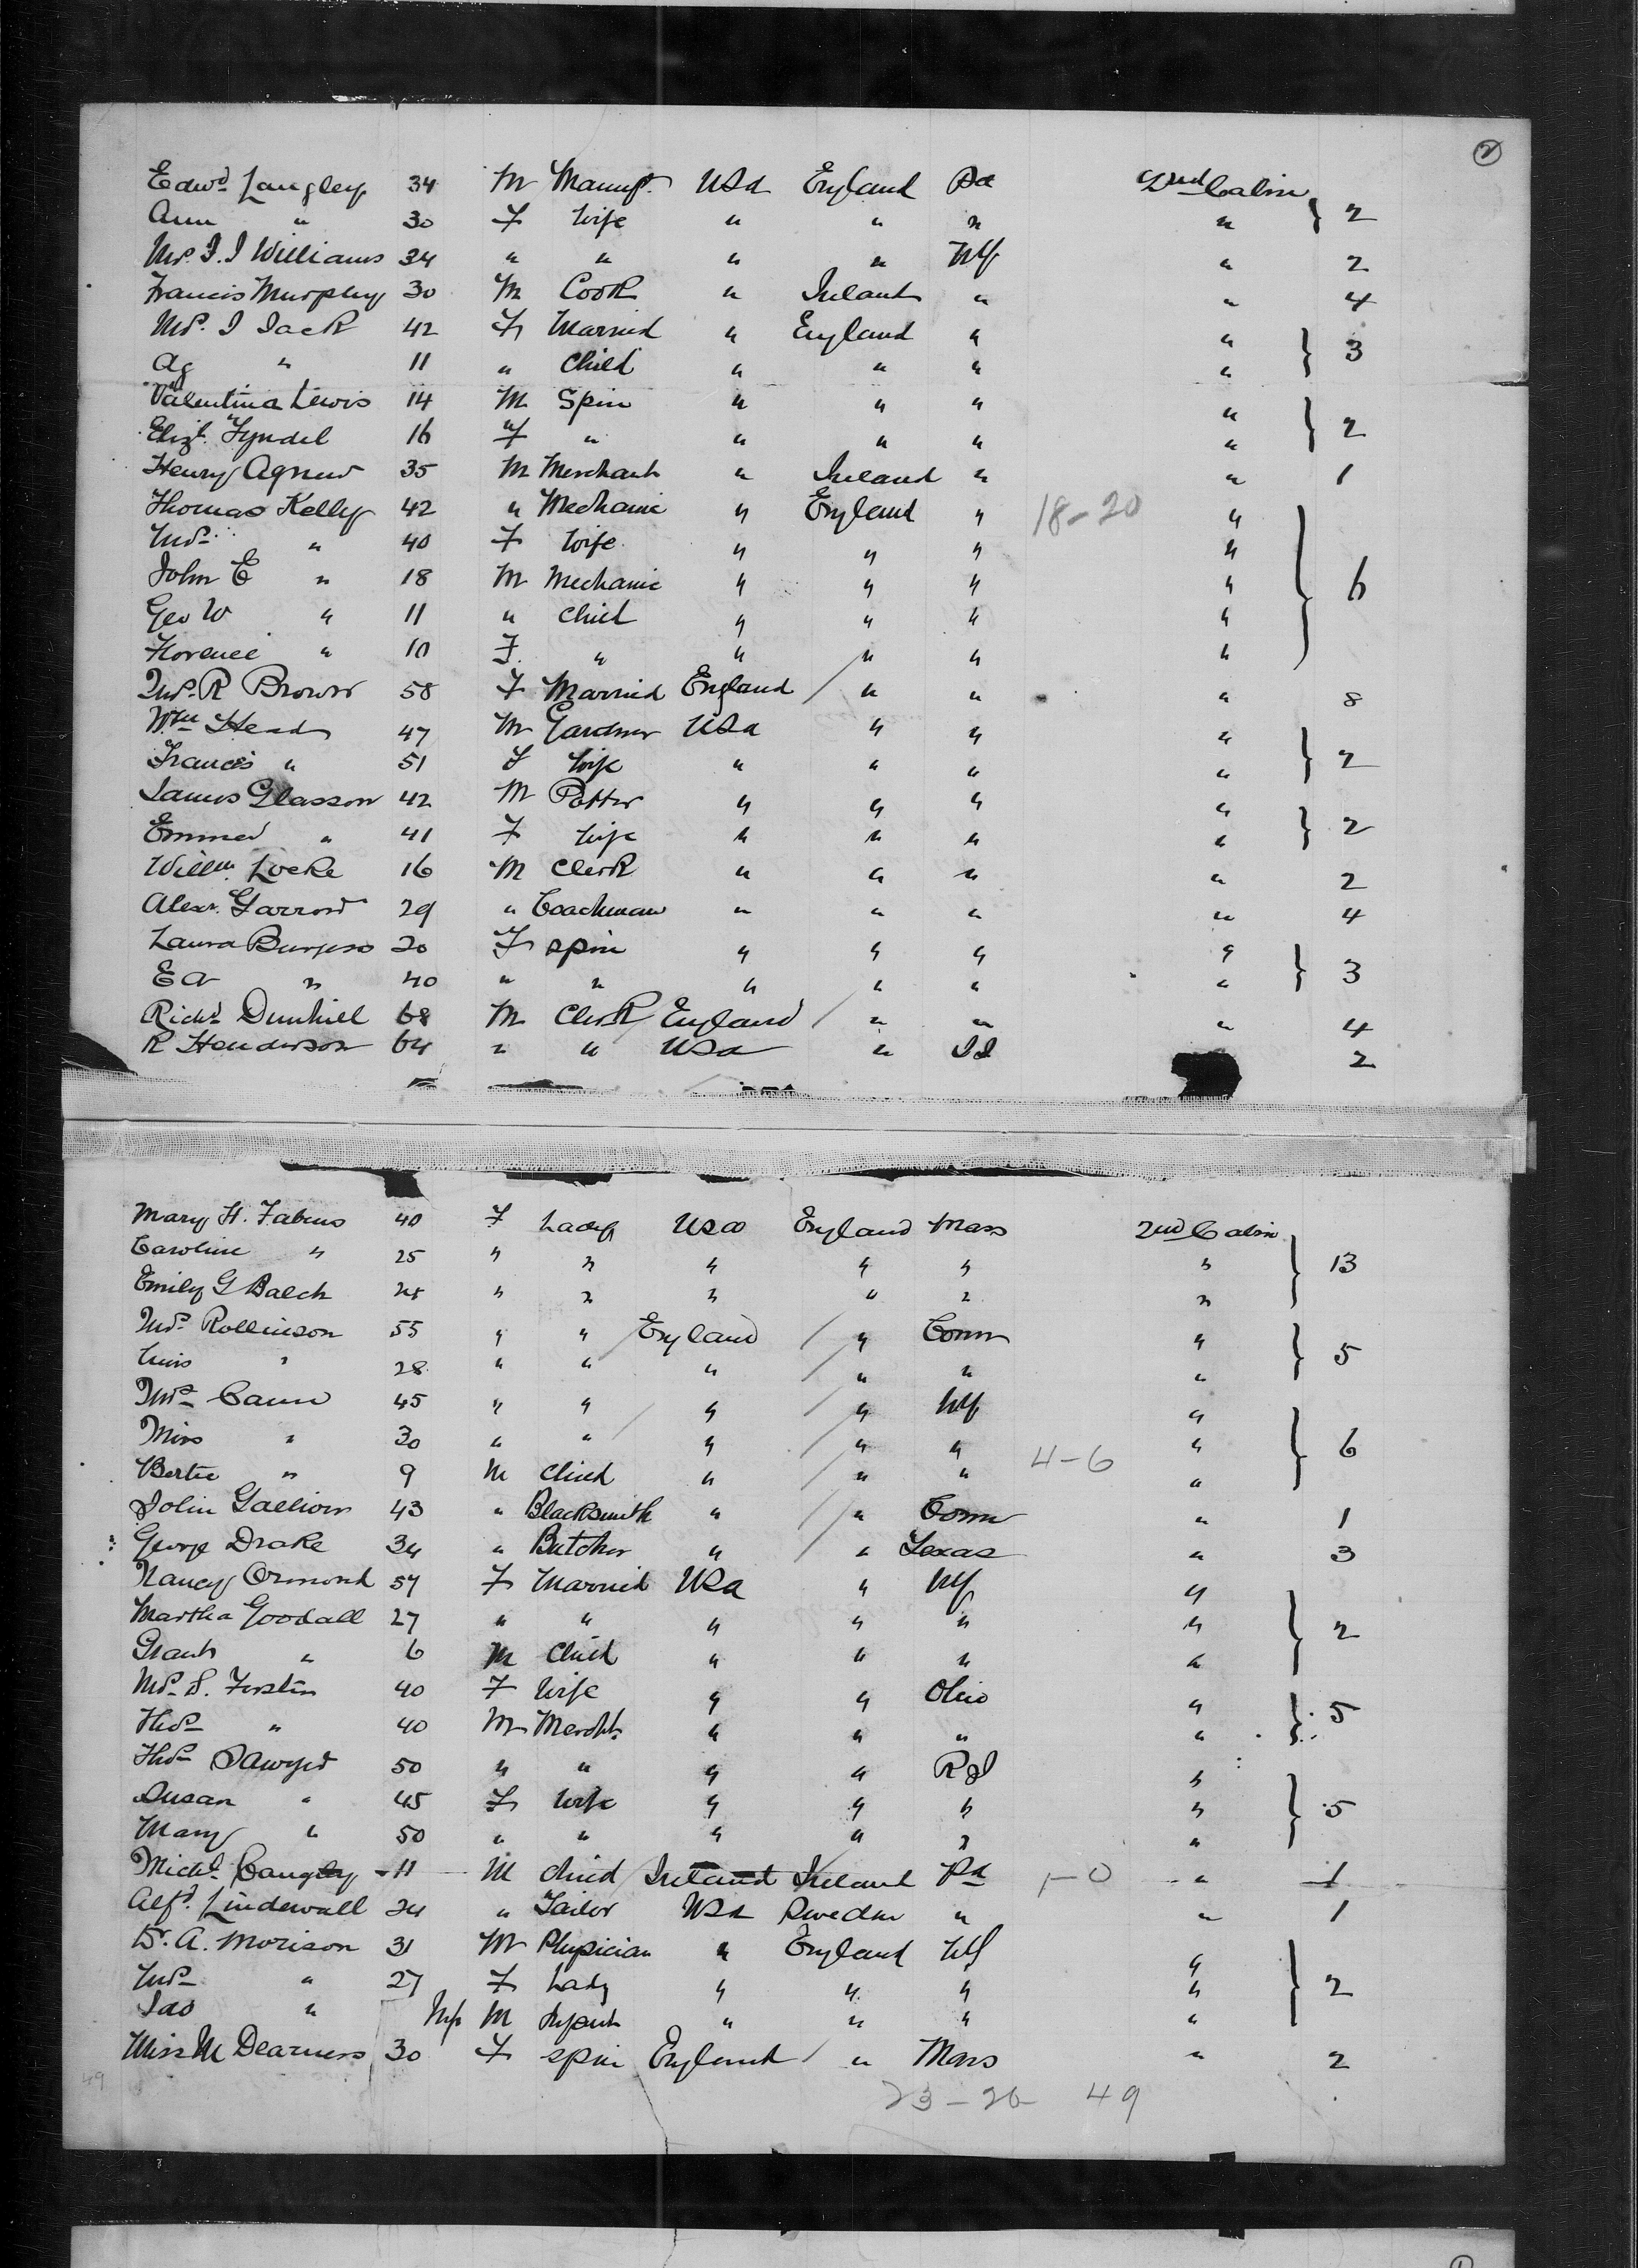 2
Edwd Langley 34 M Manuf. USA England Pa 2nd Cabin
Ann " 30 F Wife " " " " } 2
Mrs. J. J Williams 34 " " " " NY " 2
Francis Murphy 30 M Cook " Ireland " " 4
Mrs. J Jack 42 F Married " England " "
Ag " 11 " Child " " " " } 3
Valentina Lewis 14 M Spin " " " "
Elizt. Tyndel 16 F " " " " " } 2
Henry Agnew 35 M Merchant " Ireland " " 1
Thomas Kelly 42 " Mechanic " England " 18-20 "
Mrs. " 40 F Wife " " " "
John E " 18 M Mechanic " " " " } 6
Geo W " 11 " Child " " " "
Florence " 10 F. " " / " " "
Mrs. R Brown 58 F Married England / " " " 8
Wm Head 47 M Gardner USA " " "
Francis " 51 F Wife " " " " } 2
James Glasson 42 M Potter " " " "
Emmed " 41 F Wife " " " " } 2
Willm. Locke 16 M Clerk " " " " 2
Alexr. Garrow 29 " Coachman " " " " 4
Laura Burgess 20 F Spin " " " "
E A " 40 " " " " " " } 3
Richd Dunhill 68 M Clerk / England / " " " 4
R Henderson 64 " " USA " 2
Mary H. Fabens 40 F Lady USA England Mass 2nd Cabin
Caroline " 25 " " " " " " } 13
Emily G Balch 28 " " " " " "
Mrs. Rollinson 55 " " / England / " Conn "
Miss " 28 " " " / " " " } 5
Mrs. Cann 45 " " / " / " NY "
Miss " 30 " " / " / " " 4-6 " } 6
Bertie " 9 M Child " / " " "
John Gallion 43 " Blacksmith " / " Conn " 1
George Drake 34 " Butcher " / " Texas " 3
Nancy Ormond 57 F Married USA " NY "
Martha Goodall 27 " " " " " " } 2
Grant " 6 M Child " " " "
Mrs. S. Forstin 40 F Wife " " Ohio "
Thos " 40 M Mercht. " " " " } 5
Thos Sawyer 50 " " " " R I "
Susan " 45 F Wife " " " " } 5
Mary " 50 " " " " " "
Michl. 11 M Child / Ireland Ireland Pa 1-0 " 1
Alfd. Lindewall 24 " Tailor USA Sweden " " 1
Dr. A. Morison 31 M Physician " England NY "
Mrs " 27 F Lady " " " " } 2
Jas " M Infant " " " "
Miss M Dearness 30 F Spin England / " Mass " 2
49 23-26 49